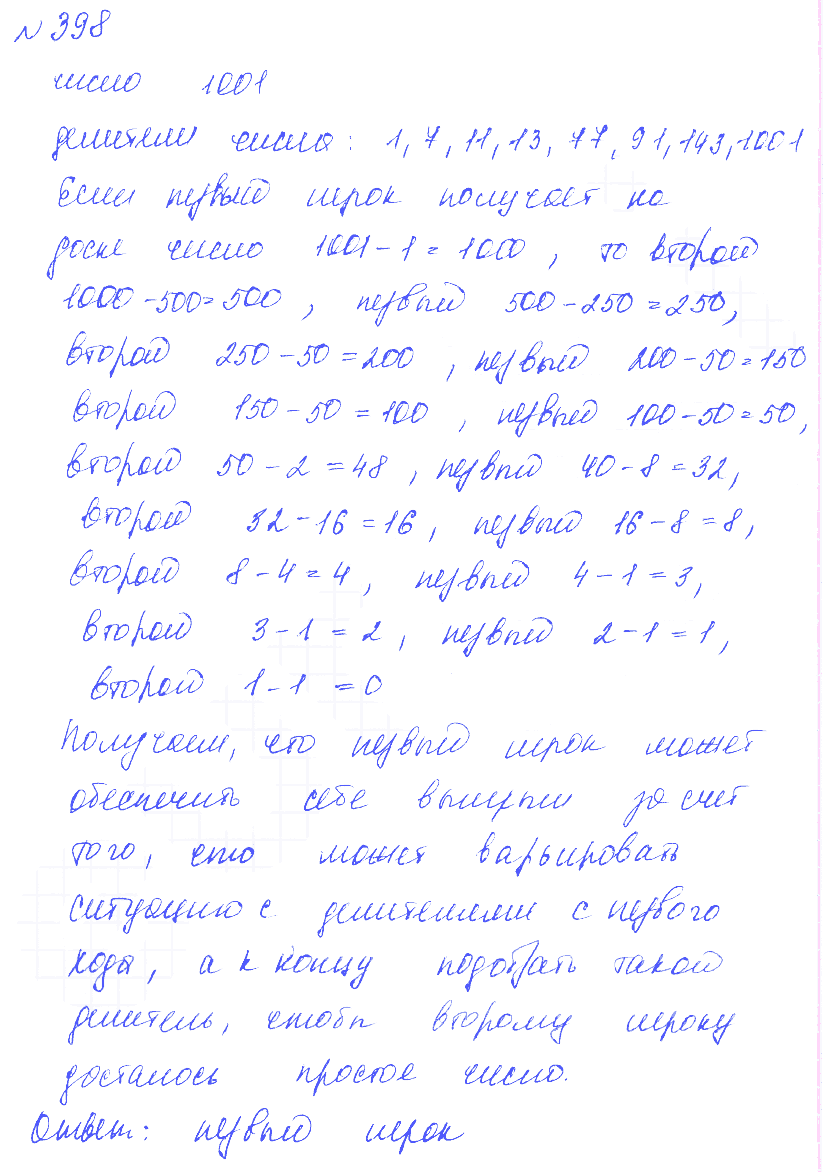 №398
число 1001
делители числа: 1, 7, 11, 13, 77, 91, 143, 1001
Если первый игрок получает на
доске число 1001-1=1000, то второй
1000-500=500, первый 500-250=250,
второй 250-50=200, первый 200-50=150
второй 150-50=100, первый 100-50=50,
второй 50-2=48, первый 40-8=32,
второй 32-16=16, первый 16-8=8,
второй 8-4=4, первый 4-1=3,
второй 3-1=2, первый 2-1=1,
второй 1-1=0
Получаем, что первый игрок может
обеспечить себе выигрыш за счет
того, что может варьировать
ситуацию с делителями с первого
хода, а к концу подобрать такой
делитель, чтобы второму игроку
досталось простое число.
Ответ: первый игрок